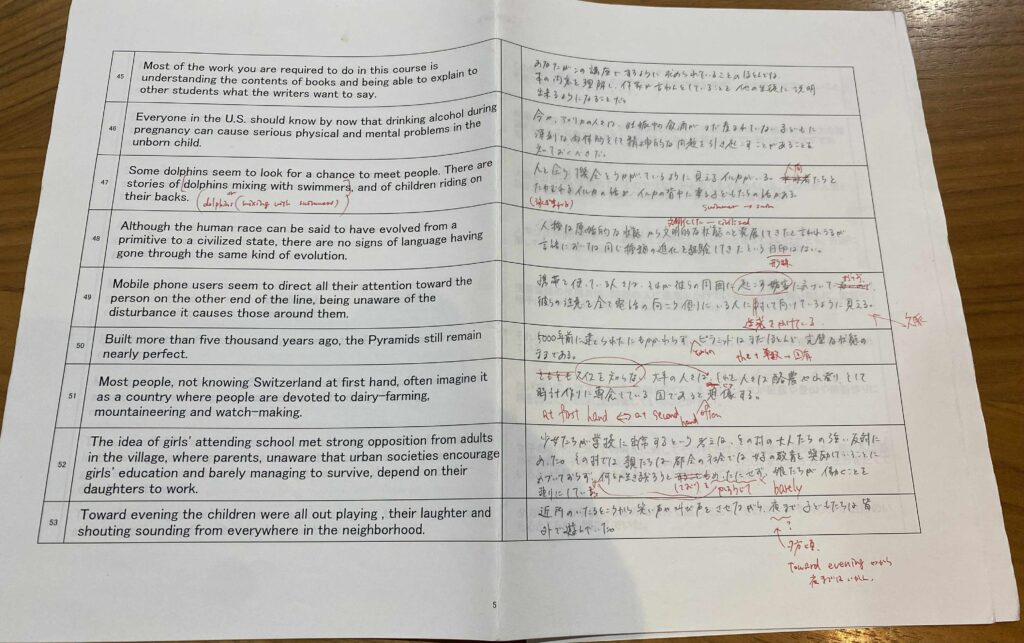 45
Most of the work you are required to do in this course is
understanding the contents of books and being able to explain to
other students what the writers want to say.
あなたがこの講座でするように求められていることのほとんどは、
本の内容を理解し、作家が言わんとしていることを他の生徒に説明
出来るようになることだ。
46
Everyone in the U.S. should know by now that drinking alcohol during
pregnancy can cause serious physical and mental problems in the
unborn child.
今や、アメリカの人々は、妊娠中の飲酒がまだ産まれていない子どもに
深刻な肉体的そして精神的な問題を引き起こすことがあることを
知っておくべきだ。
47
Some dolphins seem to look for a chance to meet people. There are
stories of dolphins mixing with swimmers, and of children riding on
their backs.
(dolphins (mixing with swimmers)
人と会う機会をうかがっているように見えるイルカがいる。
人間
たちと
たわむれるイルカの話や、イルカの背中に乗る子どもたちの話がある
swimmer → swim
48
Although the human race can be said to have evolved from a
primitive to a civilized state, there are no signs of language having
gone through the same kind of evolution.
文明化した ー civilized
人種は原始的な状態から文明的な状態へと発展してきたと言われうるが
言語においては同じ種類の進化を経験してきたという目印はない。
形跡
49
Mobile phone users seem to direct all their attention toward the
person on the other end of the line, being unaware of the
disturbance it causes those around them.
携帯を使っている人々は、それが彼らの周囲に起こす妨害に気づいて
おらず
彼らの注意を全て電話の向こう側にいる人に対して向けているように見える。
迷惑をかけている
50
Built more than five thousand years ago, the Pyramids still remain
nearly perfect.
5000年前に建てられたにもかかわらず、ピラミッドはまだほとんど、完璧な状態の
ままである。
51
Most people, not knowing Switzerland at first hand, often imagine it
as a country where people are devoted to dairy-farming,
mountaineering and watch-making.
スイスを知らない大半の人々は、
人々が酪農や山登り、そして
時計作りに専念している国であると想像する。
at first hand ⇔ at second hand
often
52
The idea of girls' attending school met strong opposition from adults
in the village, where parents, unaware that urban societies encourage
girls' education and barely managing to survive, depend on their
daughters to work.
少女たちが学校に出席するという考えは、その村の大人たちの強い反対に
あった。その村では親たちは都会の社会では女子の教育を奨励していることに
気づいておらず、何とか生き残ろうと
娘たちが働くことを
頼りにしている。
barely
53
Toward evening the children were all out playing , their laughter and
shouting sounding from everywhere in the neighborhood.
近所のいたるところから笑い声や叫び声をさせながら、夜まで子どもたちは皆
外で遊んでいた。
?
夕方頃
Toward evening だから
夜まではいかない
5